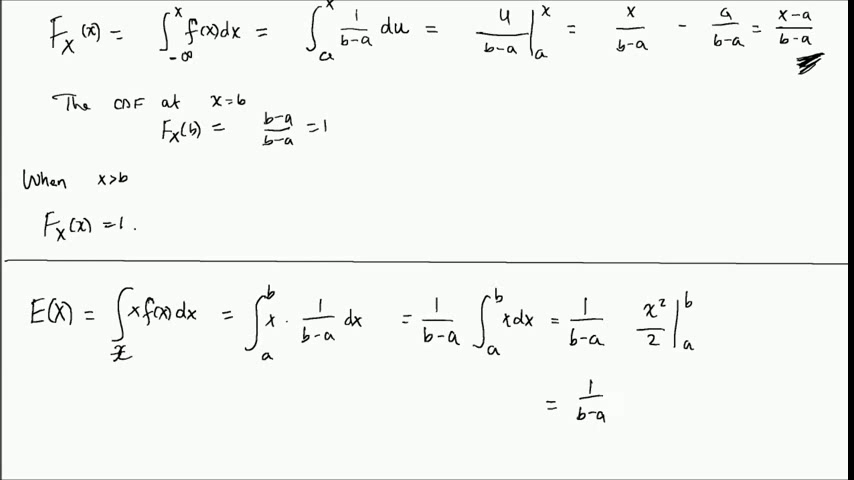 F_X(x) = ∫_{-∞}^{x} f(x)dx = ∫_{a}^{x} 1/(b-a) du = u/(b-a) |_{a}^{x} = x/(b-a) - a/(b-a) = (x-a)/(b-a)
The CDF at x=b
F_X(b) = (b-a)/(b-a) = 1
When x>b
F_X(x) = 1.
E(X) = ∫_x x f(x) dx = ∫_{a}^{b} x · 1/(b-a) dx = 1/(b-a) ∫_{a}^{b} x dx = 1/(b-a) x²/2 |_{a}^{b}
= 1/(b-a)